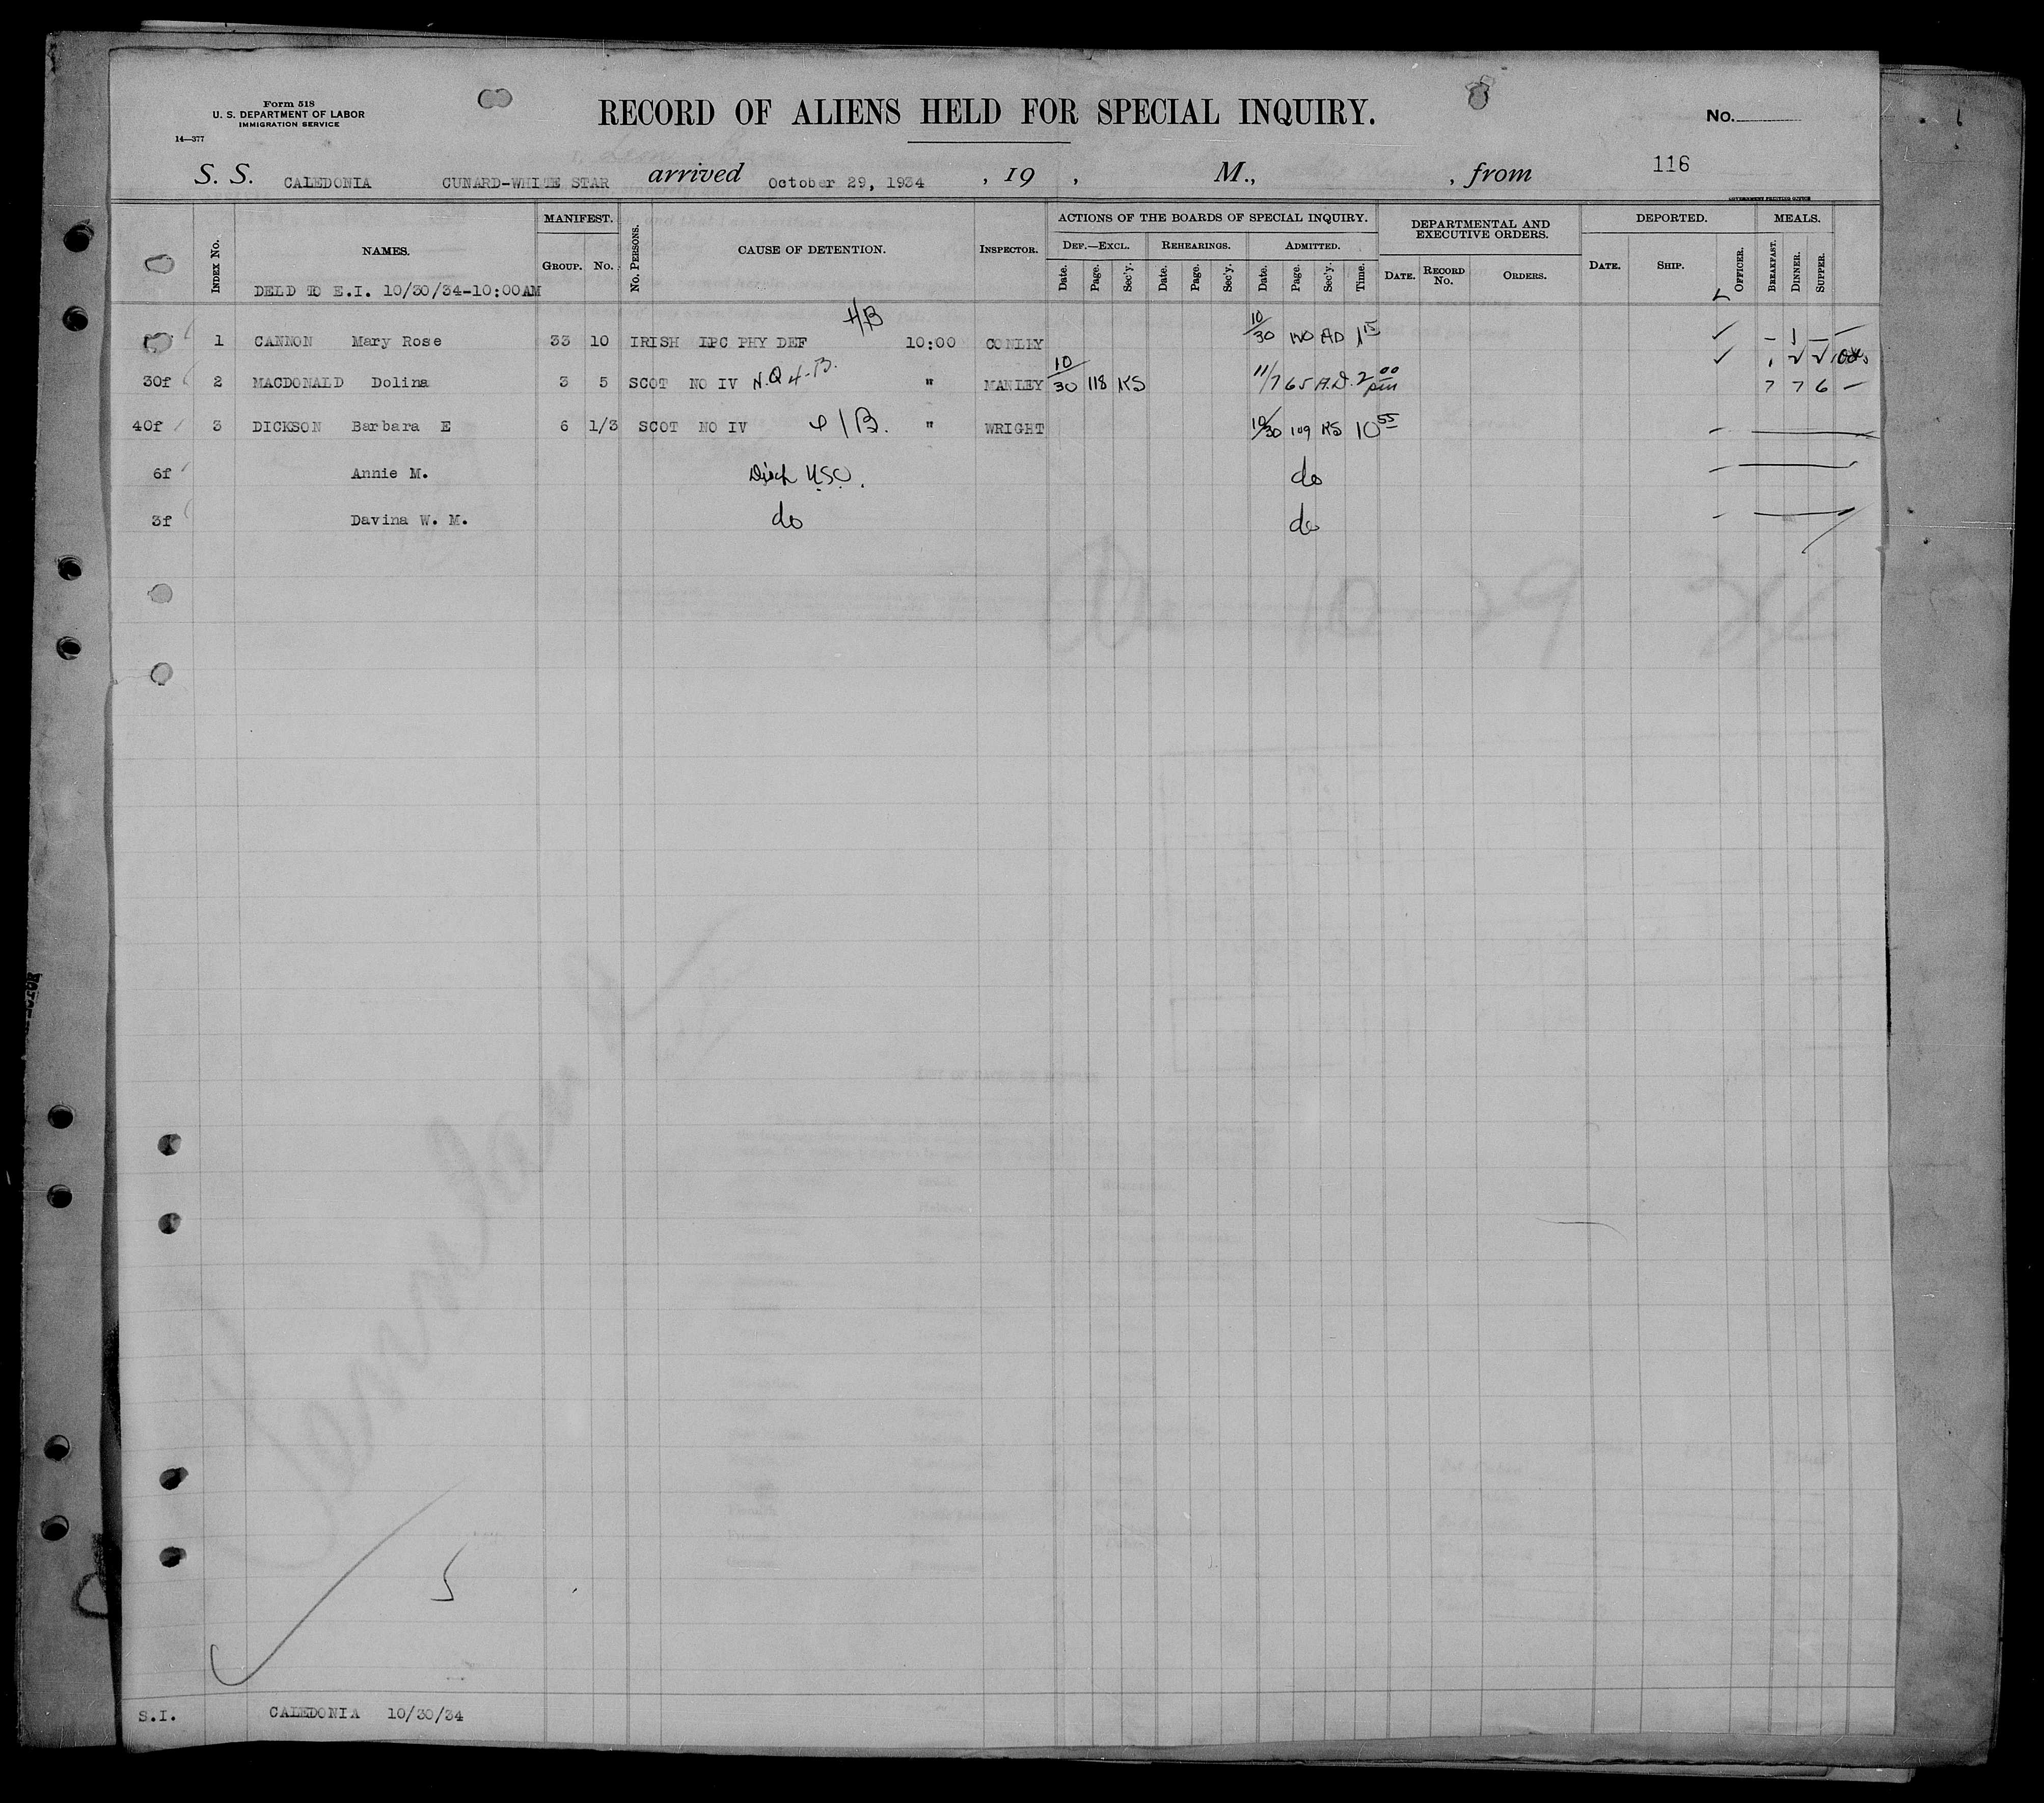 Form 518
U. S. DEPARTMENT OF LABOR
IMMIGRATION SERVICE
14—377
RECORD OF ALIENS HELD FOR SPECIAL INQUIRY.
No.
116
S. S. CALEDONIA CUNARD-WHITE STAR arrived October 29, 1934 , 19 , M., , from
GOVERNMENT PRINTING OFFICE
INDEX No. NAMES. MANIFEST. GROUP. No. No. PERSONS. CAUSE OF DETENTION. INSPECTOR. ACTIONS OF THE BOARDS OF SPECIAL INQUIRY. DEPARTMENTAL AND EXECUTIVE ORDERS. DEPORTED. MEALS.
DEF.—EXCL. REHEARINGS. ADMITTED.
Date. Page. Sec'y. Date. Page. Sec'y. Date. Page. Sec'y. Time. DATE. RECORD No. ORDERS. DATE. SHIP. OFFICER. BREAKFAST. DINNER. SUPPER.
DELD TO E.I. 10/30/34-10:00AM
1 CANNON Mary Rose 33 10 IRISH LPC PHY DEF 10:00 CONLLY 10/30 AD 1 15
30f 2 MACDONALD Dolina 3 5 SCOT NO IV " MANLEY 10/30 118 KS 11/7 65 A.D. 2 00 pm 7 7 6 —
40f 3 DICKSON Barbara E 6 1/3 SCOT NO IV " WRIGHT 10/30 109 KS 10 55
6f Annie M. Disch U.S.C. do
3f Davina W. M. do do
5
S.I. CALEDONIA 10/30/34